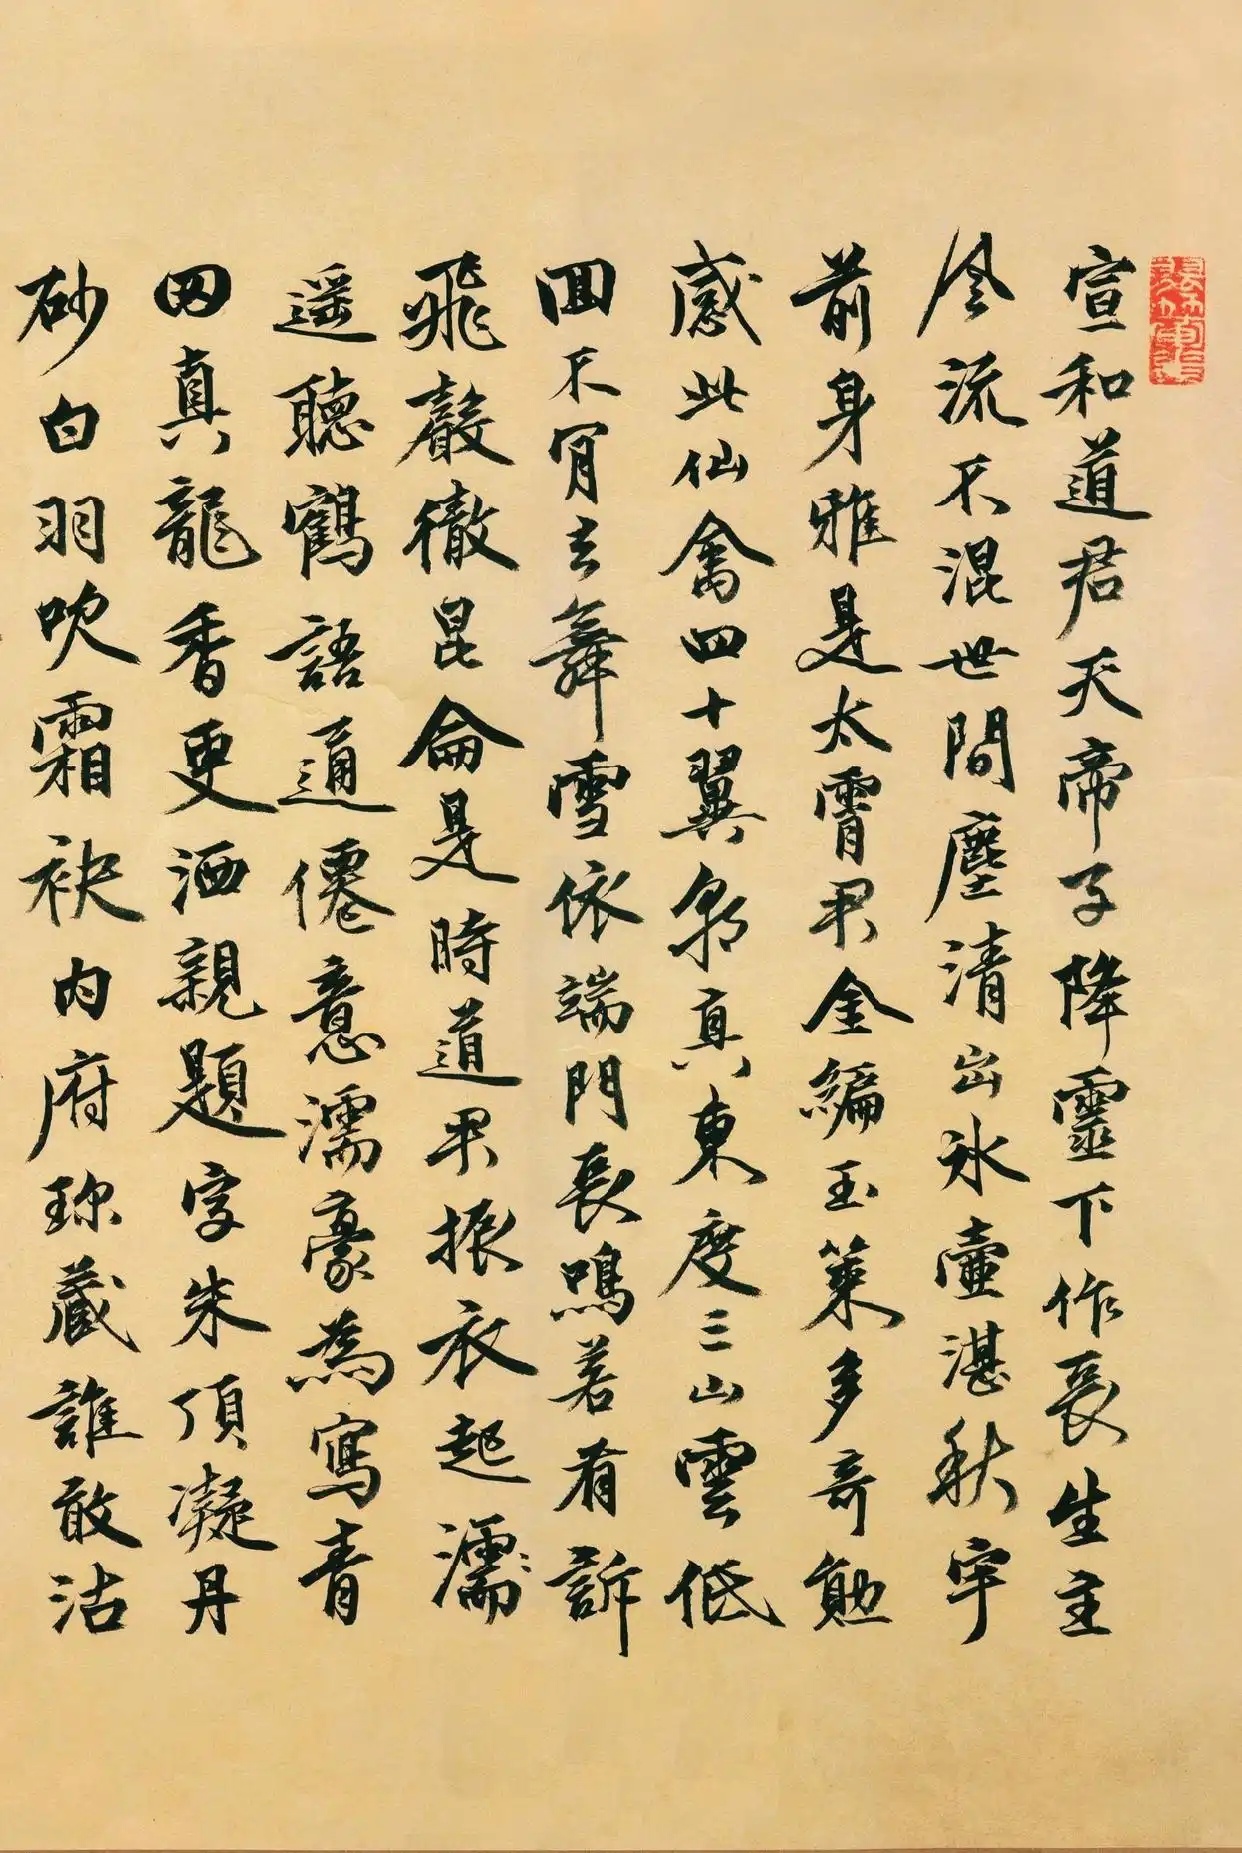 宣和道君天帝子降靈下作長生主
風流不混世間塵清出冰壺湛秋宇
前身雅是太霄君金編玉策多奇勳
感此仙禽四十翼朝真東度三山雲低
回不肯去舞雪依端門長鳴若有訴
飛聲徹昆侖是時道君振衣起濡
遥聽鶴語通僊意濡豪為寫青
田真龍香更洒親題字朱頂凝丹
砂白羽吹霜袂内府珎藏誰敢沽